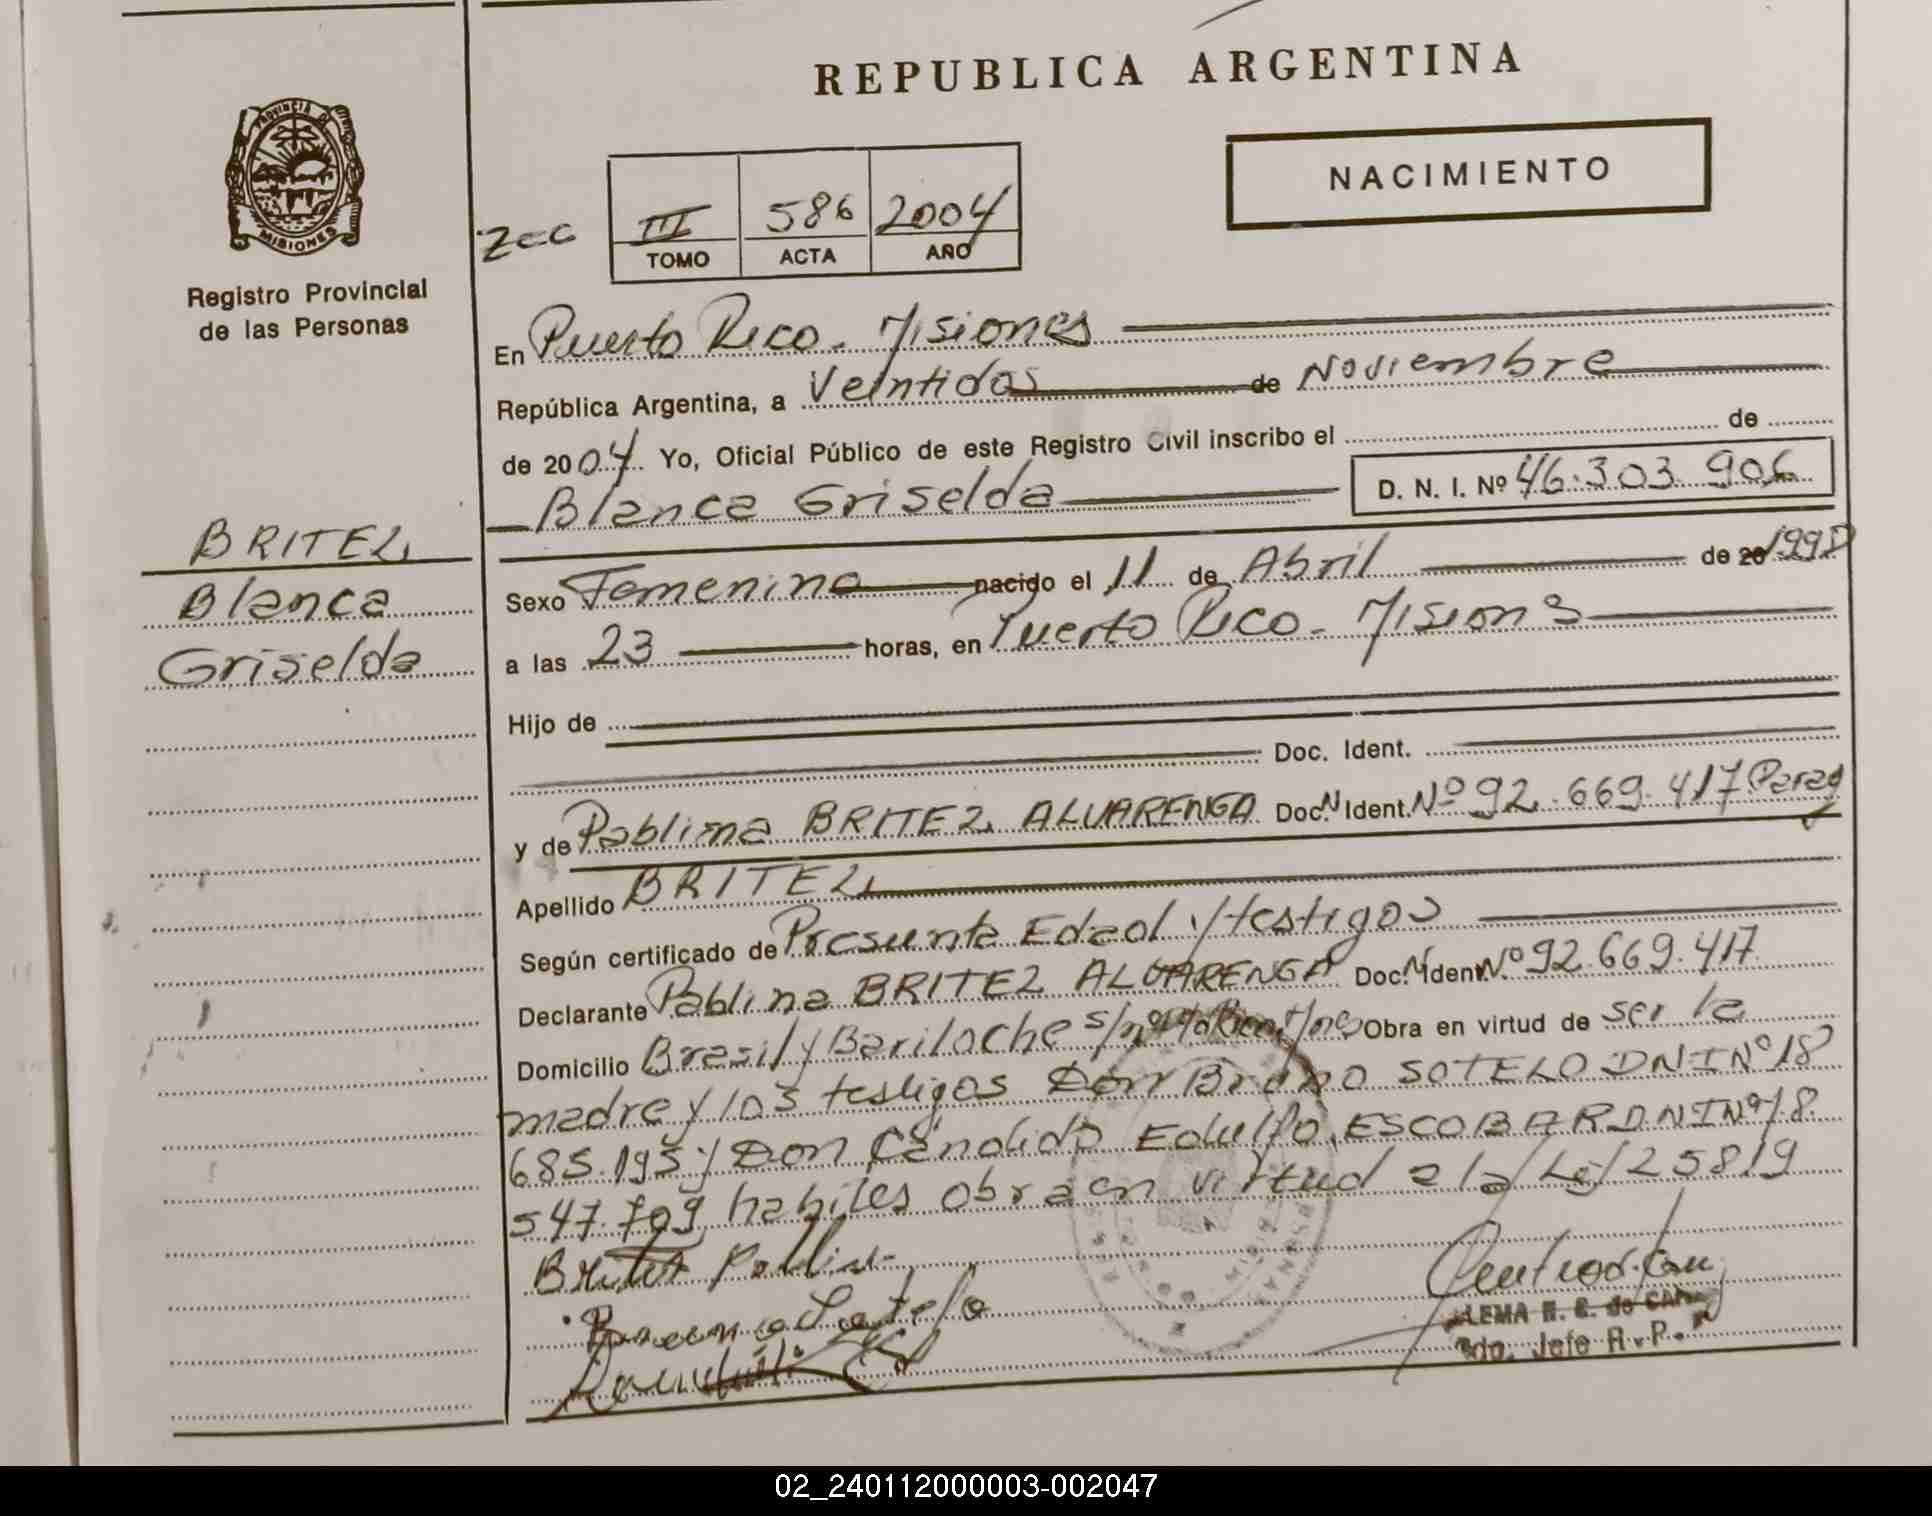 REPUBLICA ARGENTINA
NACIMIENTO
PROVINCIA DE
MISIONES
Registro Provincial
de las Personas
III 586 2004
TOMO ACTA AÑO
En Puerto Rico. Misiones
República Argentina, a Veintidos de Noviembre
de 2004. Yo, Oficial Público de este Registro Civil inscribo el de
Blanca Griselda D. N. I. Nº 46.303.906
BRITEZ
Blanca
Griselda
Sexo Femenino nacido el 11 de Abril de 20 1998
a las 23 horas, en Puerto Rico. Misions
Hijo de
Doc. Ident.
y de Pablina BRITEZ ALVARENGA Doc. N Ident. Nº 92.669.417 Parag
Apellido BRITEZ
Según certificado de Presunta Edad y testigos
Declarante Pablina BRITEZ ALVARENGA Doc. N Ident. Nº 92.669.417
Domicilio Brasil y Bariloche s/nº Pto Rico Mnes Obra en virtud de ser la
madre y los testigos Don Bruno SOTELO DNI Nº 18
685.195 y Don Cándido Edulfo ESCOBAR DNI Nº 18.
547.709 habiles obra en virtud a la Ley 25819
Britez Pablina
Bruno Sotelo
LEMA de
Jefe R.P.
02_240112000003-002047